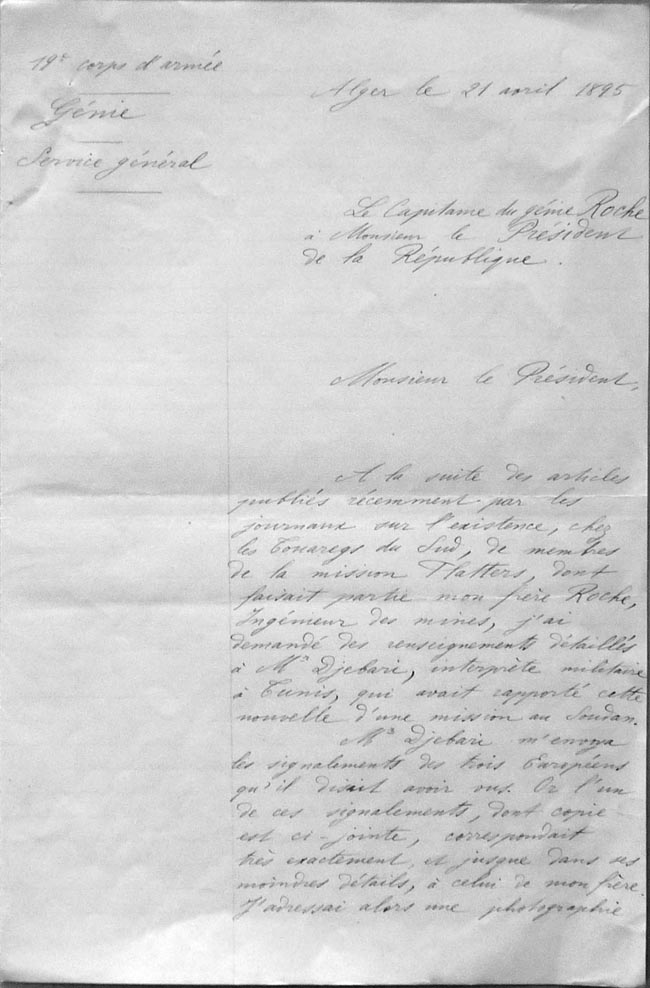 19e corps d'armée
Génie
Service général
Alger le 21 avril 1895
Le Capitaine du génie Roche
à Monsieur le Président
de la République.
Monsieur le Président,
A la suite des articles
publiés récemment par les
journaux sur l'existence, chez
les Touaregs du Sud, de membres
de la mission Flatters, dont
faisait partie mon frère Roche,
Ingénieur des mines, j'ai
demandé des renseignements détaillés
à Mr Djebari, interprète militaire
à Tunis, qui avait rapporté cette
nouvelle d'une mission au Soudan.
Mr Djebari m'envoya
les signalements des trois Européens
qu'il disait avoir vus. Or l'un
de ces signalements, dont copie
est ci-jointe, correspondait
très exactement, et jusque dans ses
moindres détails, à celui de mon frère.
J'adressai alors une photographie